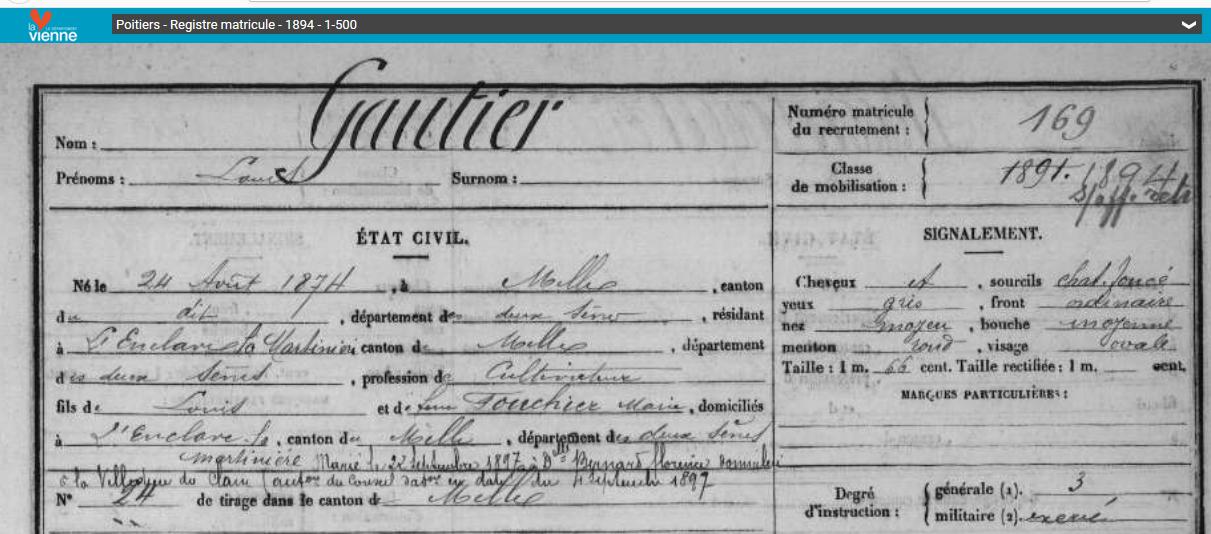 la vienne
Poitiers - Registre matricule - 1894 - 1-500
Gautier
Nom :
Prénoms : Louis Surnom :
Numéro matricule du recrutement : 169
Classe de mobilisation : 1891. 1894
ÉTAT CIVIL.
Né le 24 Août 1874, à Melle, canton
du dit, département des deux Sèvres, résidant
à L'Enclave la Martinière canton de Melle, département
des deux Sèvres, profession de Cultivateur
fils de Louis et de feue Fouchier Marie, domiciliés
à L'Enclave la, canton de Melle, département des deux Sèvres
martinière Marié le 22 septembre 1897 à Dlle Bernard florence domiciliée
à la Villedieu du Clain (autor du Conseil en date du 4 Septembre 1897
N° 24 de tirage dans le canton de Melle
SIGNALEMENT.
Cheveux et, sourcils chat. foncé
yeux gris, front ordinaire
nez moyen, bouche moyenne
menton rond, visage ovale
Taille : 1 m. 66 cent. Taille rectifiée : 1 m. cent.
MARQUES PARTICULIÈRES :
Degré d'instruction : générale (1). 3
militaire (2). exercé